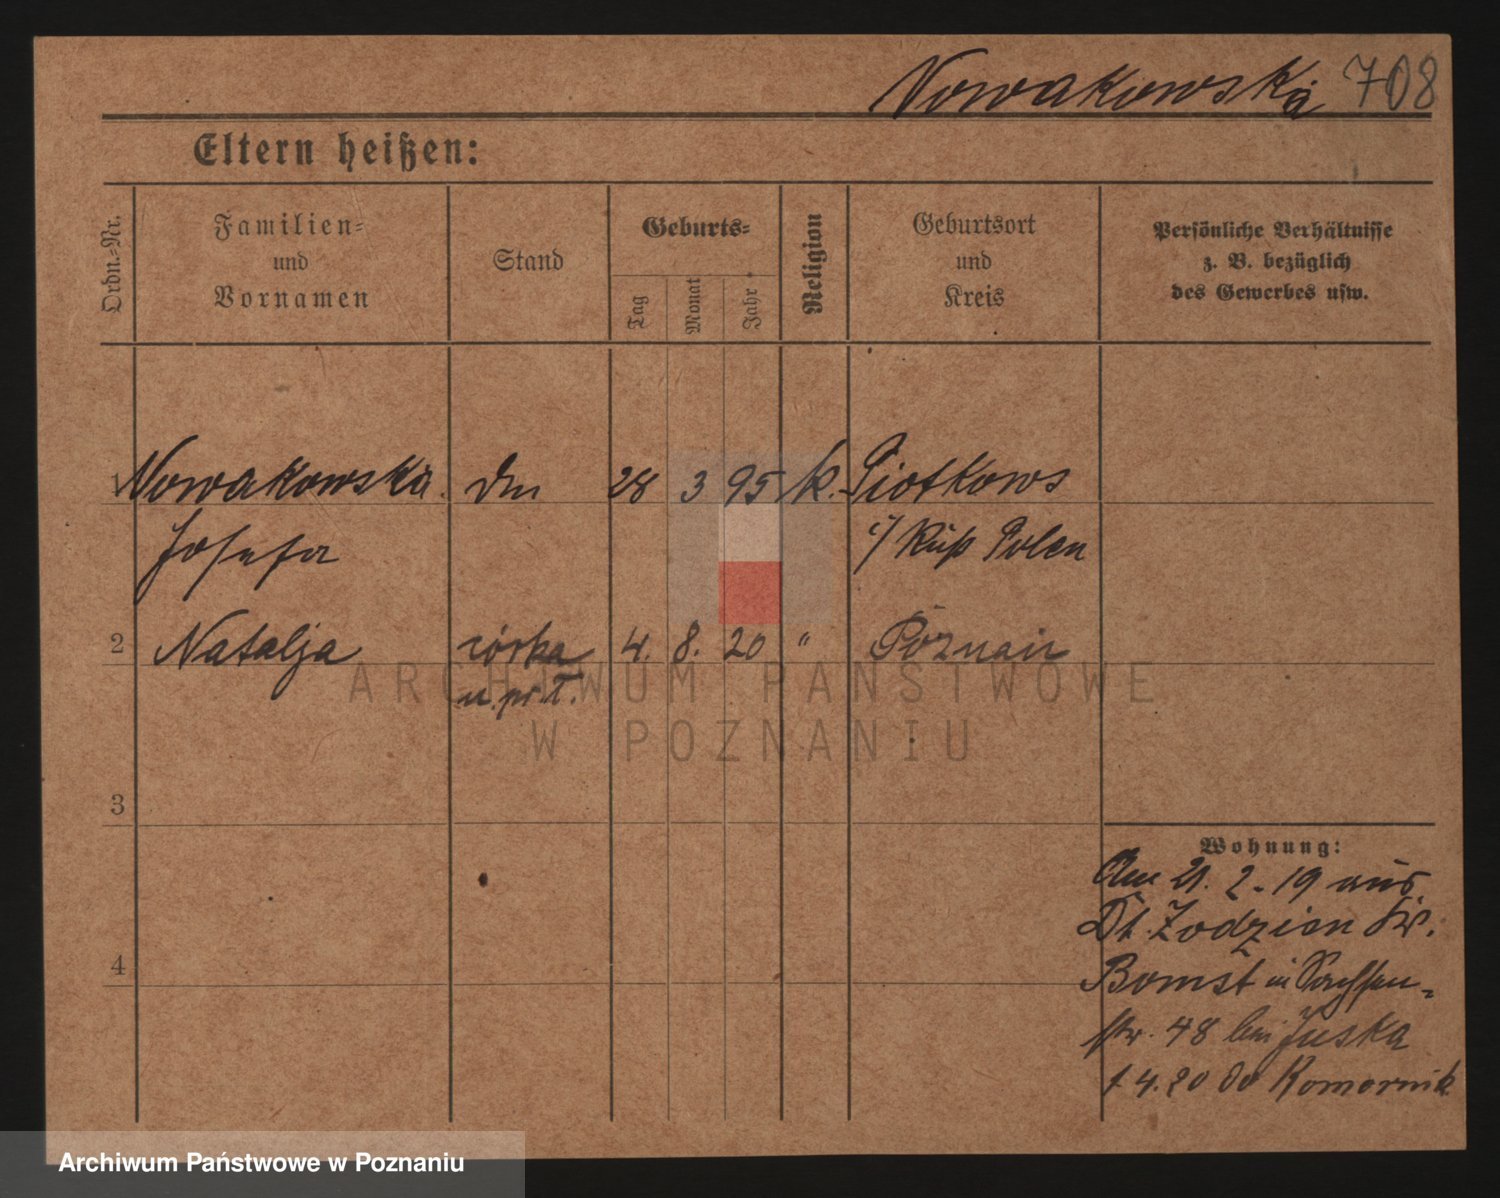 Nowakowska 708
Eltern heißen:
Ordn.-Nr.
Familien-
und
Vornamen
Stand
Geburts-
Tag
Monat
Jahr
Religion
Geburtsort
und
Kreis
Persönliche Verhältnisse
z. B. bezüglich
des Gewerbes usw.
1 Nowakowska 28 3 95 k. Piotkows
Josefa i/ Ruß Polen
2 Natalja córka 4. 8. 20 " Poznań
ARCHIWUM PAŃSTWOWE
W POZNANIU
3
4
Wohnung:
Am 21. 2. 19 aus
Dt.
Bomst in Sachsen-
str. 48 bei Juska
1 4. 20 do Komornik
Archiwum Państwowe w Poznaniu